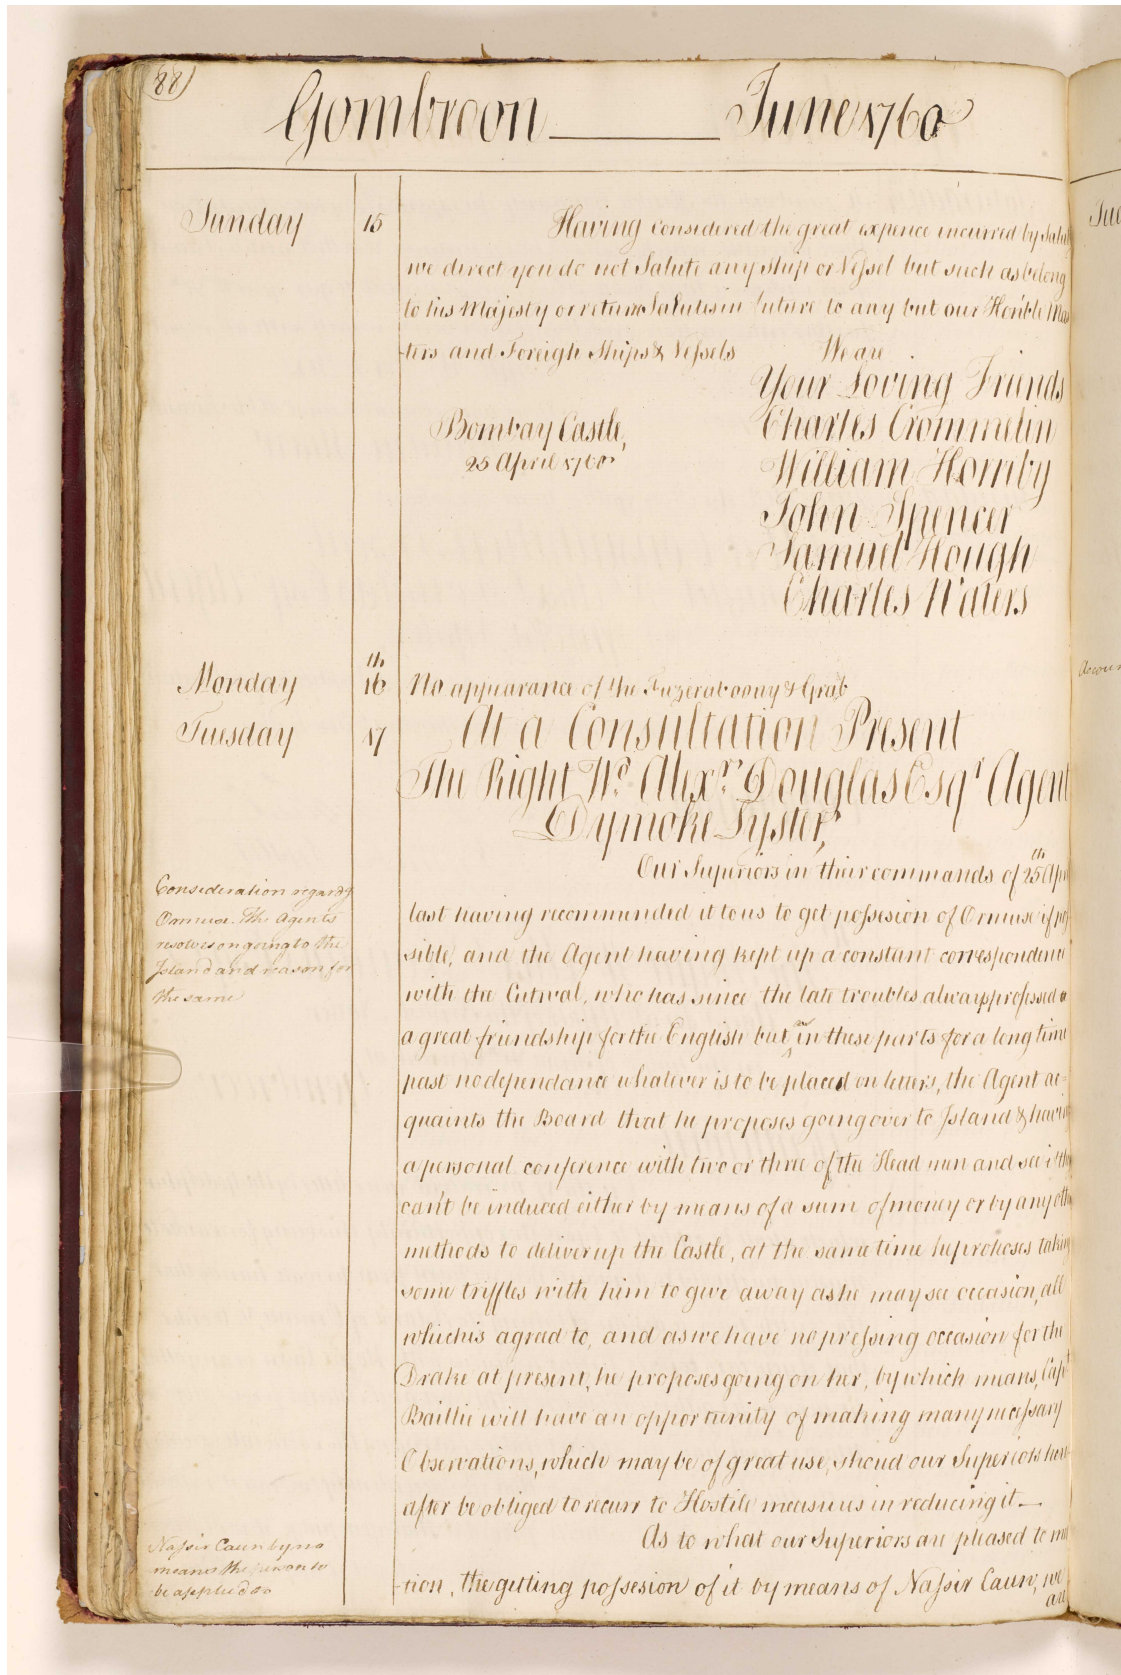 88
Gombroon June 1760
Sunday 15 Having considered the great expence incurred by Salut
we direct you do not Salute any Ship or Vessel but such as belong
to his Majesty or return Salutes in future to any but our Honble Mas
ters and Foreign Ships & Vessels We are
Your Loving Friends
Bombay Castle, Charles Crommelin
25 April 1760
William Hornby
John Spencer
Samuel Hough
Charles Waters
Monday 16th No appearance of the & Grab
Tuesday 17 At a Consultation Present
The Right Wo. Alexr. Douglas Esqr Agent
Dymoke Lyster,
Our Superiors in their commands of 25th Apr
Consideration regardg
Ormuse. The Agents
resolves on going to the
Island and reason for
the same
last having recommended it to us to get possesion of Ormuse if pos
sible, and the Agent having kept up a constant correspondence
with the Cutwal, who has since the late troubles always professed a
a great friendship for the English but as in these parts for a long time
past no dependance whatever is to be placed on letters, the Agent ac-
quaints the Board that he proposes going over to Island & having
a personal conference with two or three of the Head men and see if they
can't be induced either by means of a sum of money or by any othe
methods to deliver up the Castle, at the same time he proposes taking
some triffles with him to give away as he may see occasion, all
which is agreed to, and as we have no pressing occasion for the
Drake at present, he proposes going on her, by which means, Capt
Baillie will have an opportunity of making many necessary
Observations, which may be of great use, shoud our Superiors here
after be obliged to recurr to Hostile measures in reducing it —
As to what our Superiors are pleased to men
Nassir Caun by no
means the person to
be applied to
-tion, the getting possesion of it by means of Nassir Caun, we
are